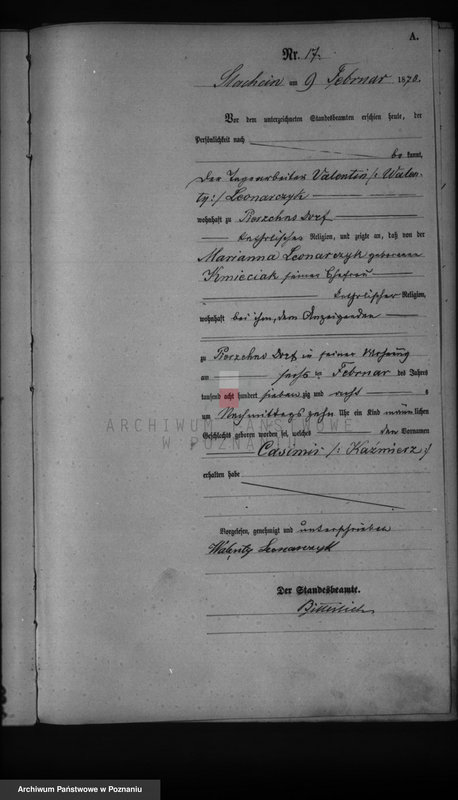 A.
Nr. 17.
am 9 Februar 1878.
Vor dem unterzeichneten Standesbeamten erschien heute, der
Persönlichkeit nach
be kannt,
der Valentin /: Walen-
ty :/ Leonarczyk
wohnhaft zu Dorf
katholischer Religion, und zeigte an, daß von der
Marianna Leonarczyk geborenen
Kmieciak seiner Ehefrau
katholischer Religion,
wohnhaft bei ihm, dem Anzeigenden
zu Dorf in seiner Wohnung
am sechs ten Februar des Jahres
tausend acht hundert sieben zig und acht
um Nachmittags zehn Uhr ein Kind männ lichen
Geschlechts geboren worden sei, welches den Vornamen
Casimir /: Kazmierz :/
erhalten habe
Vorgelesen, genehmigt und unterschrieben
Walenty Leonarczyk
Der Standesbeamte.
ARCHIWUM PAŃSTWOWE
W POZNANIU
Archiwum Państwowe w Poznaniu